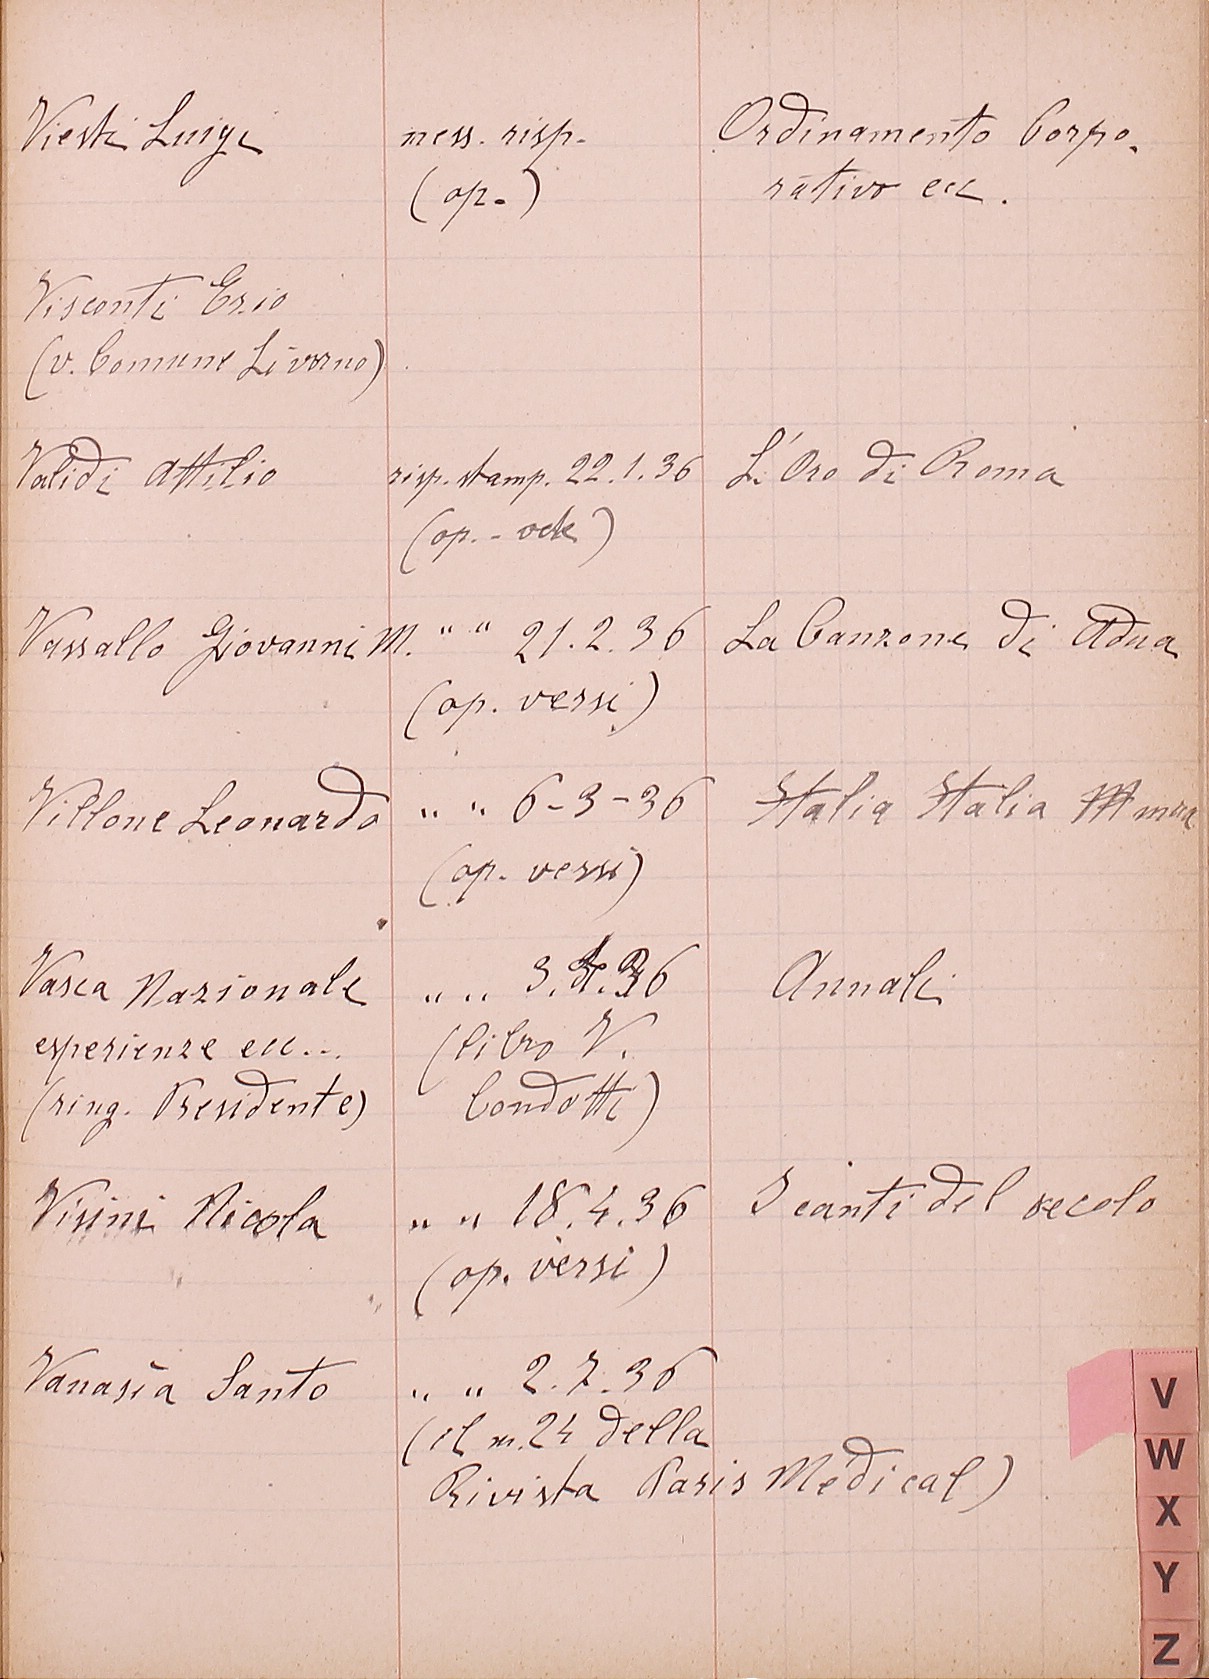 Viesti Luigi ness. risp. Ordinamento Corpo-
(op.) rativo ecc.
Visconti Ezio
(v. Comune Livorno)
Validi Attilio risp. stamp. 22.1.36 L'Oro di Roma
(op. - ode)
Vassallo Giovanni M. " " 21.2.36 La Canzone di Adua
(op. versi)
Villone Leonardo " " 6-3-36 Italia Italia
(op. versi)
Vasca Nazionale " " 3.4.36 Annali
esperienze ecc... (libro V.
(ring. Presidente) Condotti)
Visini Nicola " " 18.4.36 I canti del secolo
(op. versi)
Vanasia Santo " " 2.7.36
(il n. 24 della
Rivista Paris Médical)
V
W
X
Y
Z